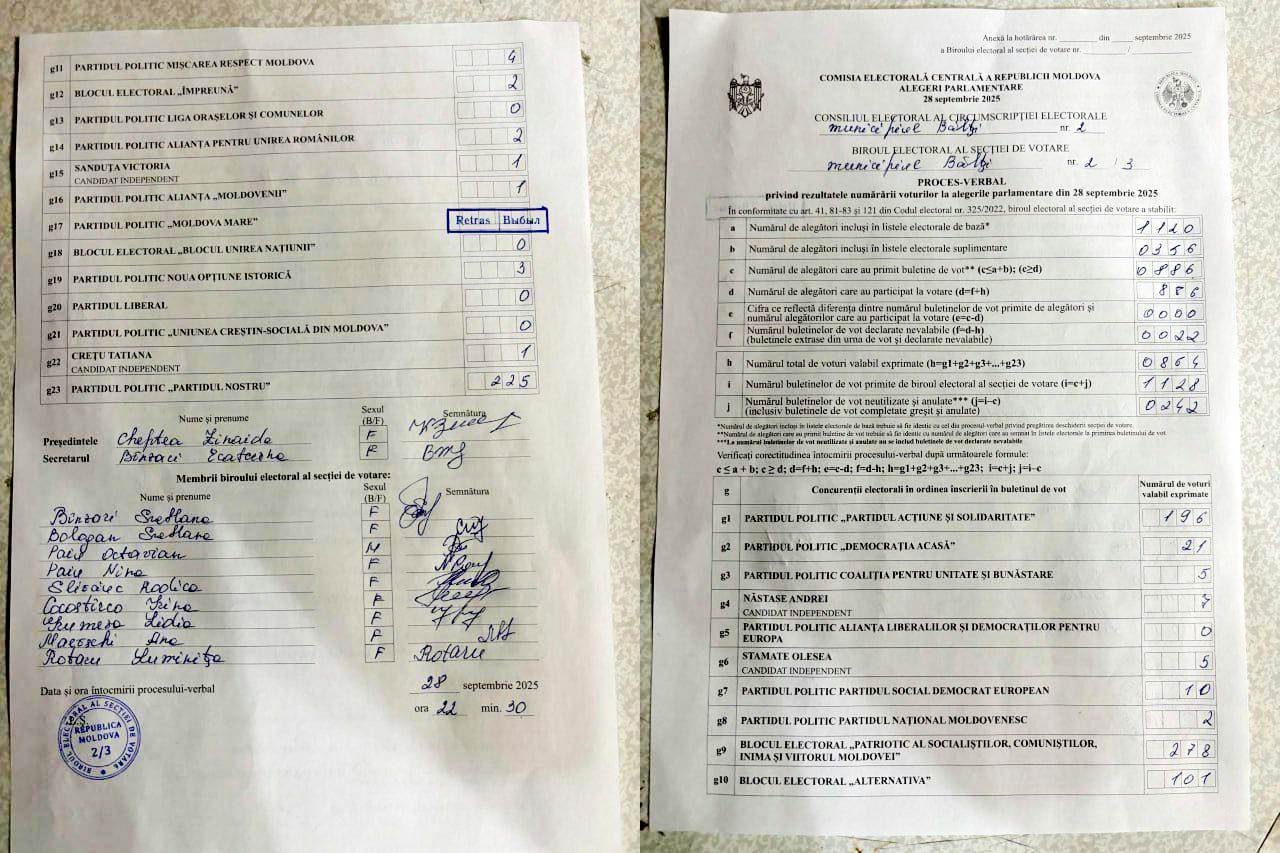 g11 PARTIDUL POLITIC MIȘCAREA RESPECT MOLDOVA 4
g12 BLOCUL ELECTORAL „ÎMPREUNĂ” 2
g13 PARTIDUL POLITIC LIGA ORAȘELOR ȘI COMUNELOR 0
g14 PARTIDUL POLITIC ALIANȚA PENTRU UNIREA ROMÂNILOR 2
g15 SANDUȚA VICTORIA 1
CANDIDAT INDEPENDENT
g16 PARTIDUL POLITIC ALIANȚA „MOLDOVENII” 1
g17 PARTIDUL POLITIC „MOLDOVA MARE” Retras Выбыл
g18 BLOCUL ELECTORAL „BLOCUL UNIREA NAȚIUNII” 0
g19 PARTIDUL POLITIC NOUA OPȚIUNE ISTORICĂ 3
g20 PARTIDUL LIBERAL 0
g21 PARTIDUL POLITIC „UNIUNEA CREȘTIN-SOCIALĂ DIN MOLDOVA” 0
g22 CREȚU TATIANA 1
CANDIDAT INDEPENDENT
g23 PARTIDUL POLITIC „PARTIDUL NOSTRU” 225
Nume și prenume Sexul (B/F) Semnătura
Președintele Cheptea Zinaida F
Secretarul Bînzari Ecaterina F
Membrii biroului electoral al secției de votare:
Nume și prenume Sexul (B/F) Semnătura
Bînzari Svetlana F
Bologan Svetlana F
Paiu Octavian M
Paiu Nina F
Rodica F
Irina F
Lidia F
Ana F
Rotaru Luminița F Rotaru
Data și ora întocmirii procesului-verbal 28 septembrie 2025
ora 22 min. 30
BIROUL ELECTORAL AL SECȚIEI DE VOTARE
REPUBLICA
MOLDOVA
2/3
Anexă la hotărârea nr. ________ din ____ septembrie 2025
a Biroului electoral al secției de votare nr. ________ / ________
COMISIA ELECTORALĂ CENTRALĂ A REPUBLICII MOLDOVA
ALEGERI PARLAMENTARE
28 septembrie 2025
CONSILIUL ELECTORAL AL CIRCUMSCRIPȚIEI ELECTORALE
municipiul Bălți nr. 2
BIROUL ELECTORAL AL SECȚIEI DE VOTARE
municipiul Bălți nr. 2 / 3
PROCES-VERBAL
privind rezultatele numărării voturilor la alegerile parlamentare din 28 septembrie 2025
În conformitate cu art. 41, 81-83 și 121 din Codul electoral nr. 325/2022, biroul electoral al secției de votare a stabilit:
a Numărul de alegători incluși în listele electorale de bază* 1120
b Numărul de alegători incluși în listele electorale suplimentare 0356
c Numărul de alegători care au primit buletine de vot** (c≤a+b); (c≥d) 0886
d Numărul de alegători care au participat la votare (d=f+h) 886
e Cifra ce reflectă diferența dintre numărul buletinelor de vot primite de alegători și
numărul alegătorilor care au participat la votare (e=c-d) 0000
f Numărul buletinelor de vot declarate nevalabile (f=d-h)
(buletinele extrase din urna de vot și declarate nevalabile) 0022
h Numărul total de voturi valabil exprimate (h=g1+g2+g3+...+g23) 0864
i Numărul buletinelor de vot primite de biroul electoral al secției de votare (i=c+j) 1128
j Numărul buletinelor de vot neutilizate și anulate*** (j=i-c)
(inclusiv buletinele de vot completate greșit și anulate) 0242
*Numărul de alegători incluși în listele electorale de bază trebuie să fie identic cu cel din procesul-verbal privind pregătirea deschiderii secției de votare.
**Numărul de alegători care au primit buletine de vot trebuie să fie identic cu numărul de alegători care au semnat în listele electorale la primirea buletinului de vot.
***La numărul buletinelor de vot neutilizate și anulate nu se includ buletinele de vot declarate nevalabile
Verificați corectitudinea întocmirii procesului-verbal după următoarele formule:
c ≤ a + b; c ≥ d; d=f+h; e=c-d; f=d-h; h=g1+g2+g3+...+g23; i=c+j; j=i-c
g Concurenții electorali în ordinea înscrierii în buletinul de vot Numărul de voturi valabil exprimate
g1 PARTIDUL POLITIC „PARTIDUL ACȚIUNE ȘI SOLIDARITATE” 196
g2 PARTIDUL POLITIC „DEMOCRAȚIA ACASĂ” 21
g3 PARTIDUL POLITIC COALIȚIA PENTRU UNITATE ȘI BUNĂSTARE 5
g4 NĂSTASE ANDREI 7
CANDIDAT INDEPENDENT
g5 PARTIDUL POLITIC ALIANȚA LIBERALILOR ȘI DEMOCRAȚILOR PENTRU
EUROPA 0
g6 STAMATE OLESEA 5
CANDIDAT INDEPENDENT
g7 PARTIDUL POLITIC PARTIDUL SOCIAL DEMOCRAT EUROPEAN 10
g8 PARTIDUL POLITIC PARTIDUL NAȚIONAL MOLDOVENESC 2
g9 BLOCUL ELECTORAL „PATRIOTIC AL SOCIALIȘTILOR, COMUNIȘTILOR,
INIMA ȘI VIITORUL MOLDOVEI” 278
g10 BLOCUL ELECTORAL „ALTERNATIVA” 101